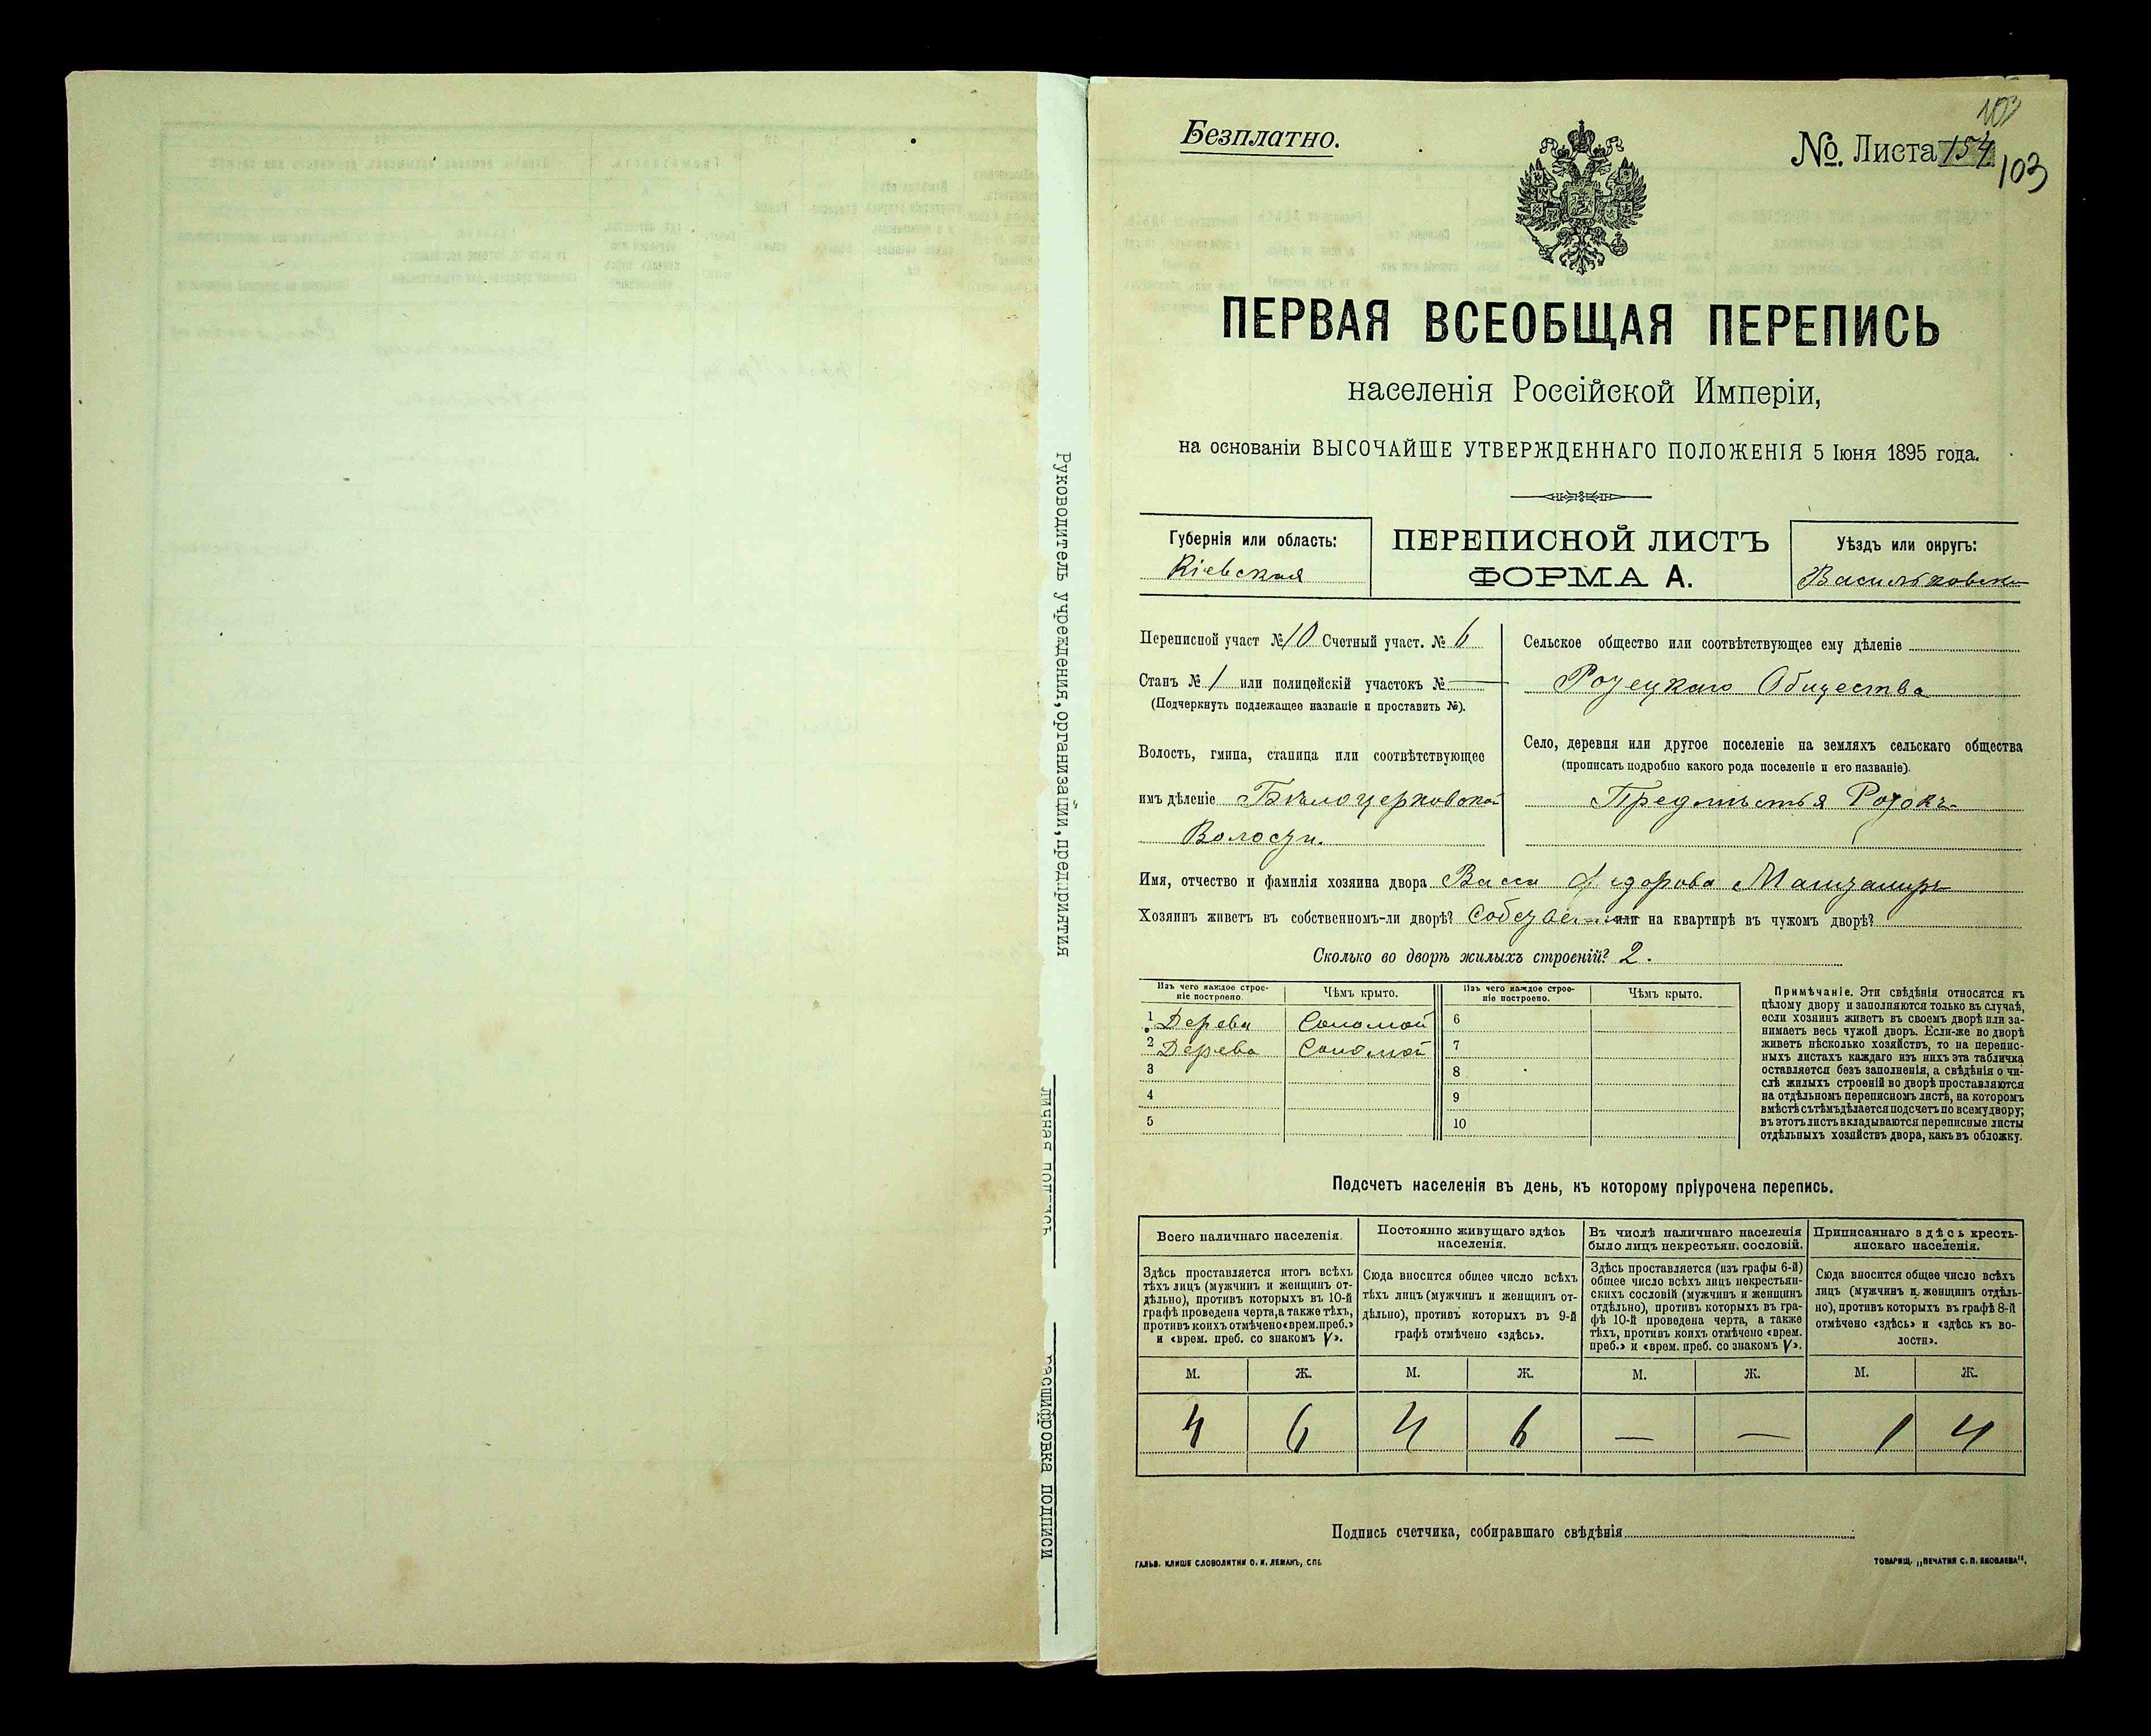 Безплатно.
103
№ Листа 154
103
ПЕРВАЯ ВСЕОБЩАЯ ПЕРЕПИСЬ
населенія Россійской Имперіи,
на основаніи ВЫСОЧАЙШЕ УТВЕРЖДЕННАГО ПОЛОЖЕНІЯ 5 Іюня 1895 года.
Губернія или область:
Кіевская
ПЕРЕПИСНОЙ ЛИСТЪ
ФОРМА А.
Уѣздъ или округъ:
Васильковскі
Переписной участ № 10 Счетный участ. № 6
Станъ № 1 или полицейскій участокъ № —
(Подчеркнуть подлежащее названіе и проставить №).
Волость, гмина, станица или соотвѣтствующее
имъ дѣленіе Бѣлоцерковской
Волости.
Сельское общество или соотвѣтствующее ему дѣленіе
Общества
Село, деревня или другое поселеніе на земляхъ сельскаго общества
(прописать подробно какого рода поселеніе и его названіе).
Предмѣстья Ротокъ
Имя, отчество и фамилія хозяина двора Васса Федорова
Хозяинъ живетъ въ собственномъ-ли дворѣ? или на квартирѣ въ чужомъ дворѣ?
Сколько во дворѣ жилыхъ строеній? 2.
Изъ чего каждое строе-
ніе построено.
Чѣмъ крыто.
Изъ чего каждое строе-
ніе построено.
Чѣмъ крыто.
1 Дерева Соломой
2 Дерева Соломой
3
4
5
6
7
8
9
10
Примѣчаніе. Эти свѣдѣнія относятся къ
цѣлому двору и заполняются только въ случаѣ,
если хозяинъ живетъ въ своемъ дворѣ или за-
нимаетъ весь чужой дворъ. Если-же во дворѣ
живетъ нѣсколько хозяйствъ, то на перепис-
ныхъ листахъ каждаго изъ нихъ эта табличка
оставляется безъ заполненія, а свѣдѣнія о чи-
слѣ жилыхъ строеній во дворѣ проставляются
на отдѣльномъ переписномъ листѣ, на которомъ
вмѣстѣ съ тѣмъ дѣлается подсчетъ по всему двору;
въ этотъ листъ вкладываются переписные листы
отдѣльныхъ хозяйствъ двора, какъ въ обложку.
Подсчетъ населенія въ день, къ которому пріурочена перепись.
Всего наличнаго населенія.
Здѣсь проставляется итогъ всѣхъ
тѣхъ лицъ (мужчинъ и женщинъ от-
дѣльно), противъ которыхъ въ 10-й
графѣ проведена черта, а также тѣхъ,
противъ коихъ отмѣчено «врем. преб.»
и «врем. преб. со знакомъ V».
Постоянно живущаго здѣсь
населенія.
Сюда вносится общее число всѣхъ
тѣхъ лицъ (мужчинъ и женщинъ от-
дѣльно), противъ которыхъ въ 9-й
графѣ отмѣчено «здѣсь».
Въ числѣ наличнаго населенія
было лицъ некрестьян. сословій.
Здѣсь проставляется (изъ графы 6-й)
общее число всѣхъ лицъ некрестьян-
скихъ сословій (мужчинъ и женщинъ
отдѣльно), противъ которыхъ въ гра-
фѣ 10-й проведена черта, а также
тѣхъ, противъ коихъ отмѣчено «врем.
преб.» и «врем. преб. со знакомъ V».
Приписаннаго здѣсь кресть-
янскаго населенія.
Сюда вносится общее число всѣхъ
лицъ (мужчинъ и женщинъ отдѣль-
но), противъ которыхъ въ графѣ 8-й
отмѣчено «здѣсь» и «здѣсь къ во-
лости».
М. Ж. М. Ж. М. Ж. М. Ж.
4 6 4 6 — — 1 4
Подпись счетчика, собиравшаго свѣдѣнія
ГАЛЬВ. КЛИШЕ СЛОВОЛИТНИ О. И. ЛЕМАНЪ, СПБ.
ТОВАРИЩ. „ПЕЧАТНЯ С. П. ЯКОВЛЕВА".
Руководитель учреждения, организации, предприятия
личная подпись
расшифровка подписи